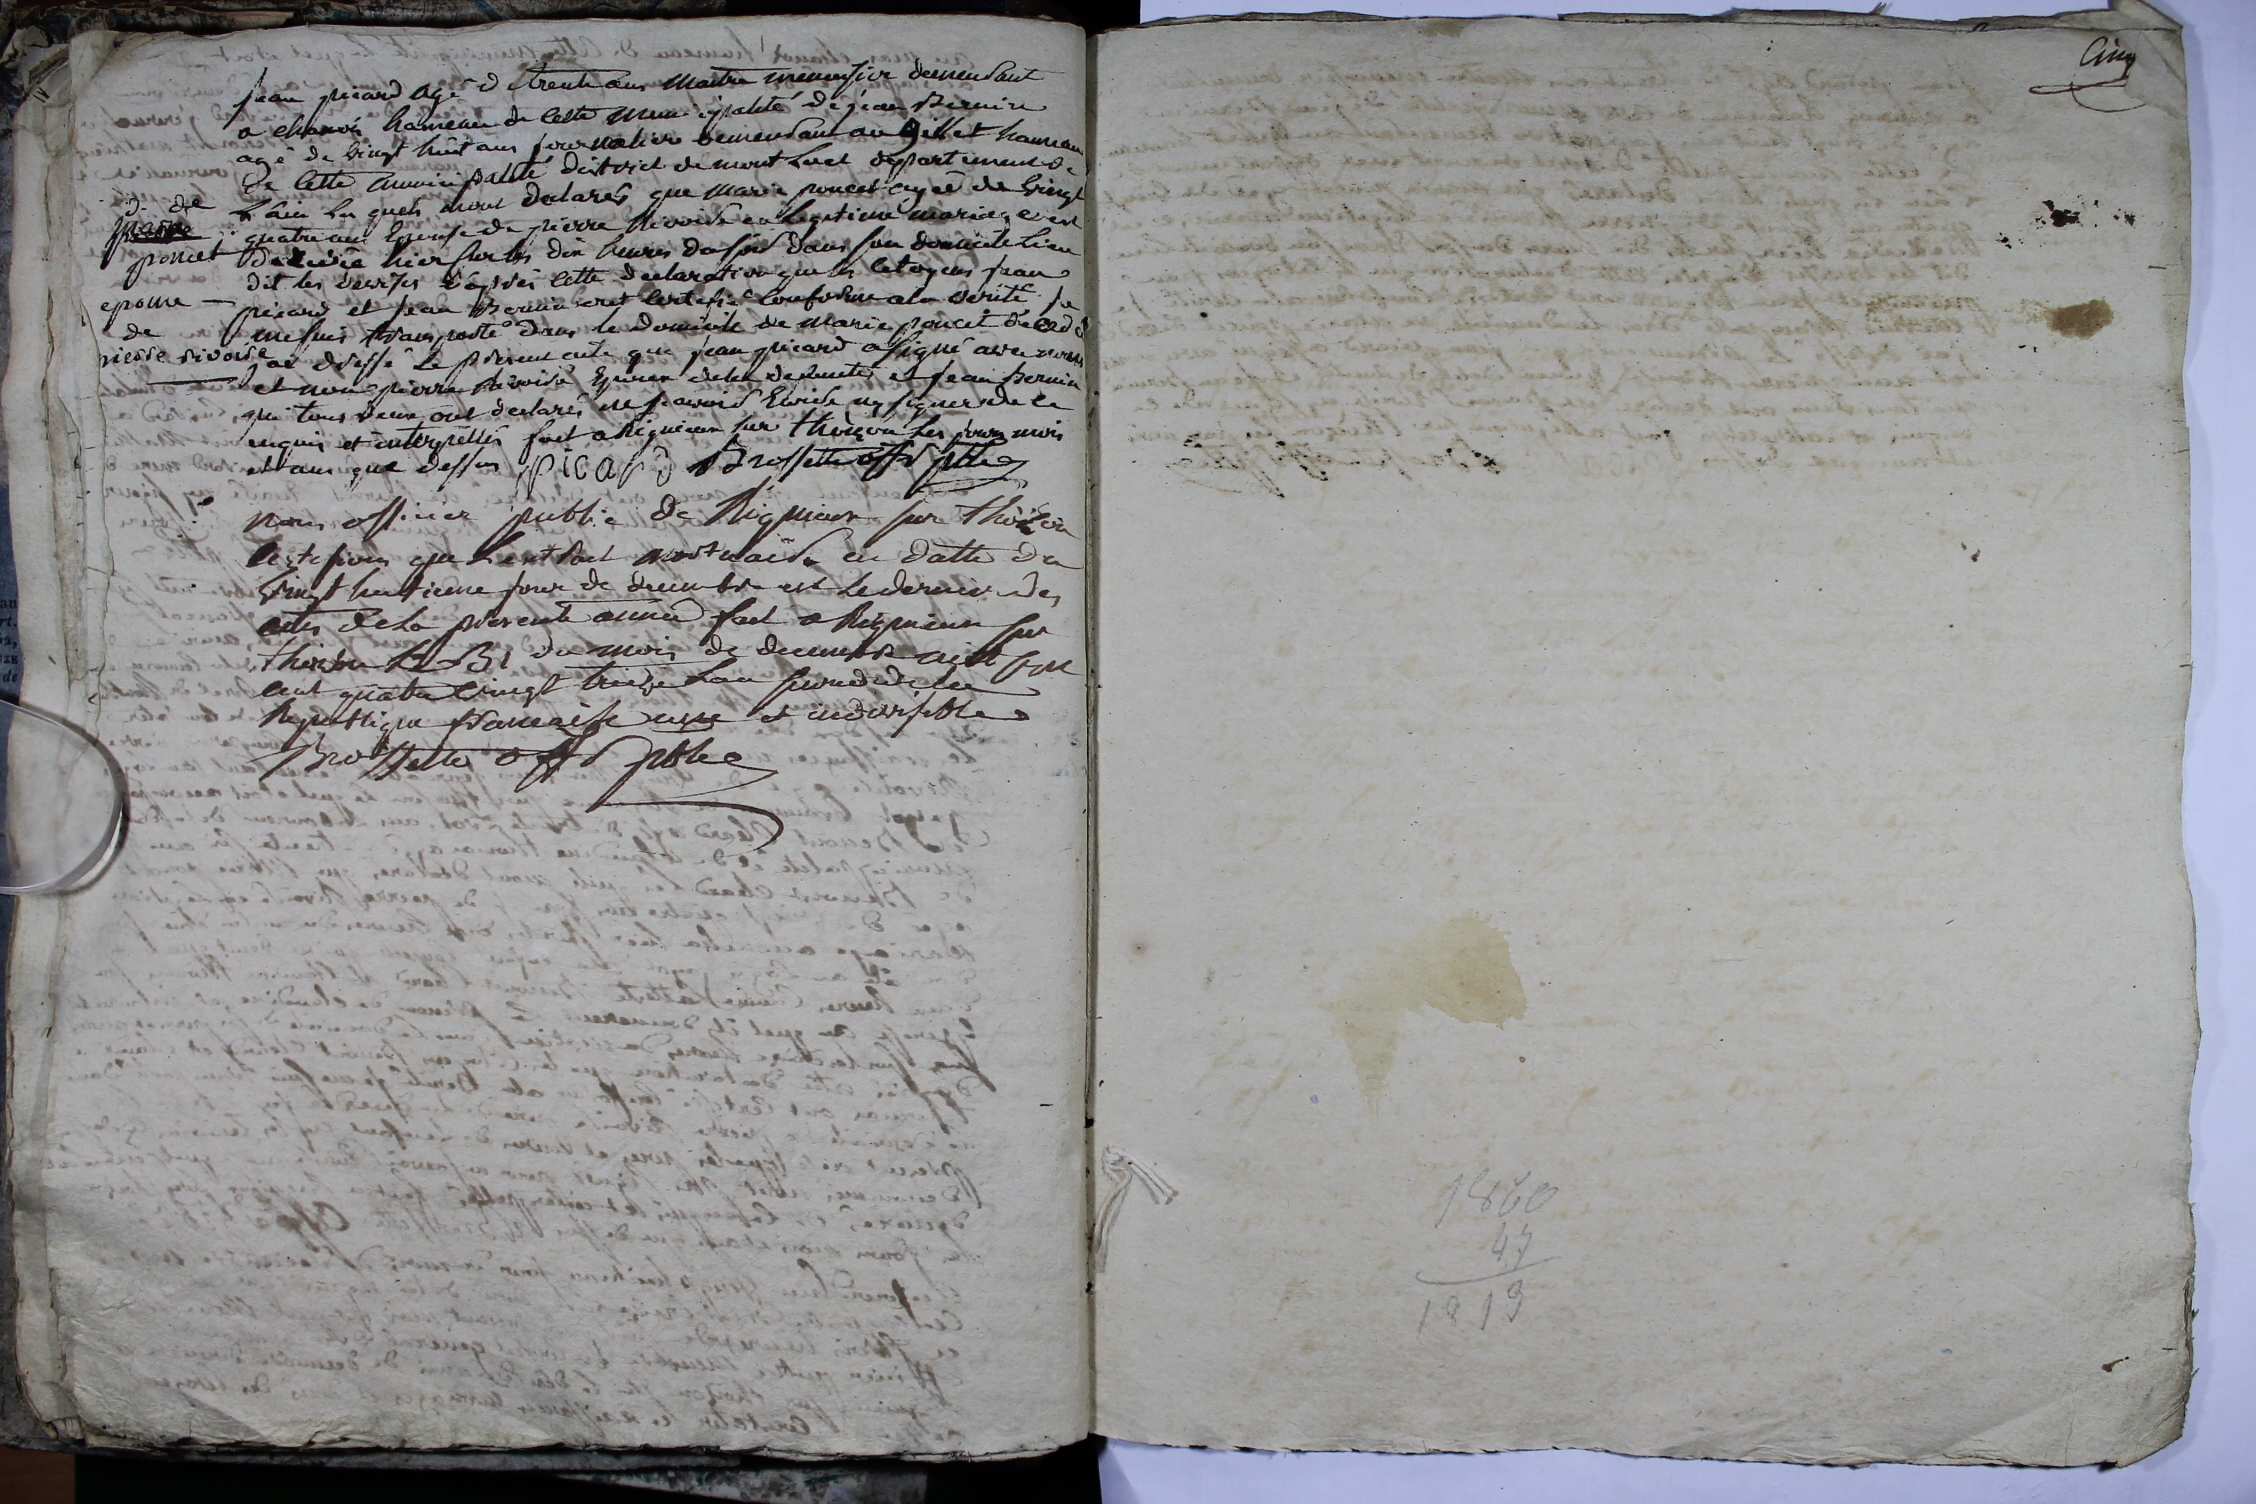 Jean picard agé de trente ans Maitre menusier demeurant
a chanoz hameau de cette municipalité de jean Bernin
agé de vingt huit ans journalier demeurant au Gillet hameau
de cette municipalité district de mont luel departement de
L'ain les quels mont declarés que marie poncet agée de vingt
quatre ans Epouse de pierre Rivoire en legitime mariage est
decedée hier sur les dix heures du soir dans son domicile lieu
dit les verses d'après cette declaration que les citoyens jean
picard et jean Bernin ont certifié conforme a la verité je
me suis transporté dans le domicile de marie poncet décedé
j'ai dressé le present acte que jean picard a signé avec nous
et non pierre Rivoire Epoux de la defunte et jean Bernin
qui tous deux ont declarés ne sçavoir Ecrire ny signer de ce
enquis et interpellés fait a Rignieux sur thoizon les jour mois
et ans que dessus picard Brossette offr pble
D. de
poncet
epouse
de
pierre rivoire
nous officier public de Rignieux sur thoizon
certifions que l'extrait mortuaire en datte du
vingt huitieme jour de decembre est le dernier des
actes de la presente année fait a Rignieux sur
thoizon le 31 du mois de decembre mil sept
cent quatre vingt treize l'an second de la
Republique francaise une et indivisible
Brossette offr pble
Cinq
1860
47
1813